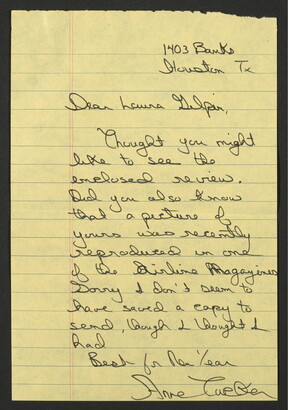 1403 Banks
Houston Tx
Dear Laura Gilpin,
Thought you might
like to see the
enclosed review.
Did you also know
that a picture of
yours was recently
reproduced in one
of the Airline Magazines
Sorry I don't seem to
have saved a copy to
send, though I thought I
had
Best for New Year
Anne Tucker